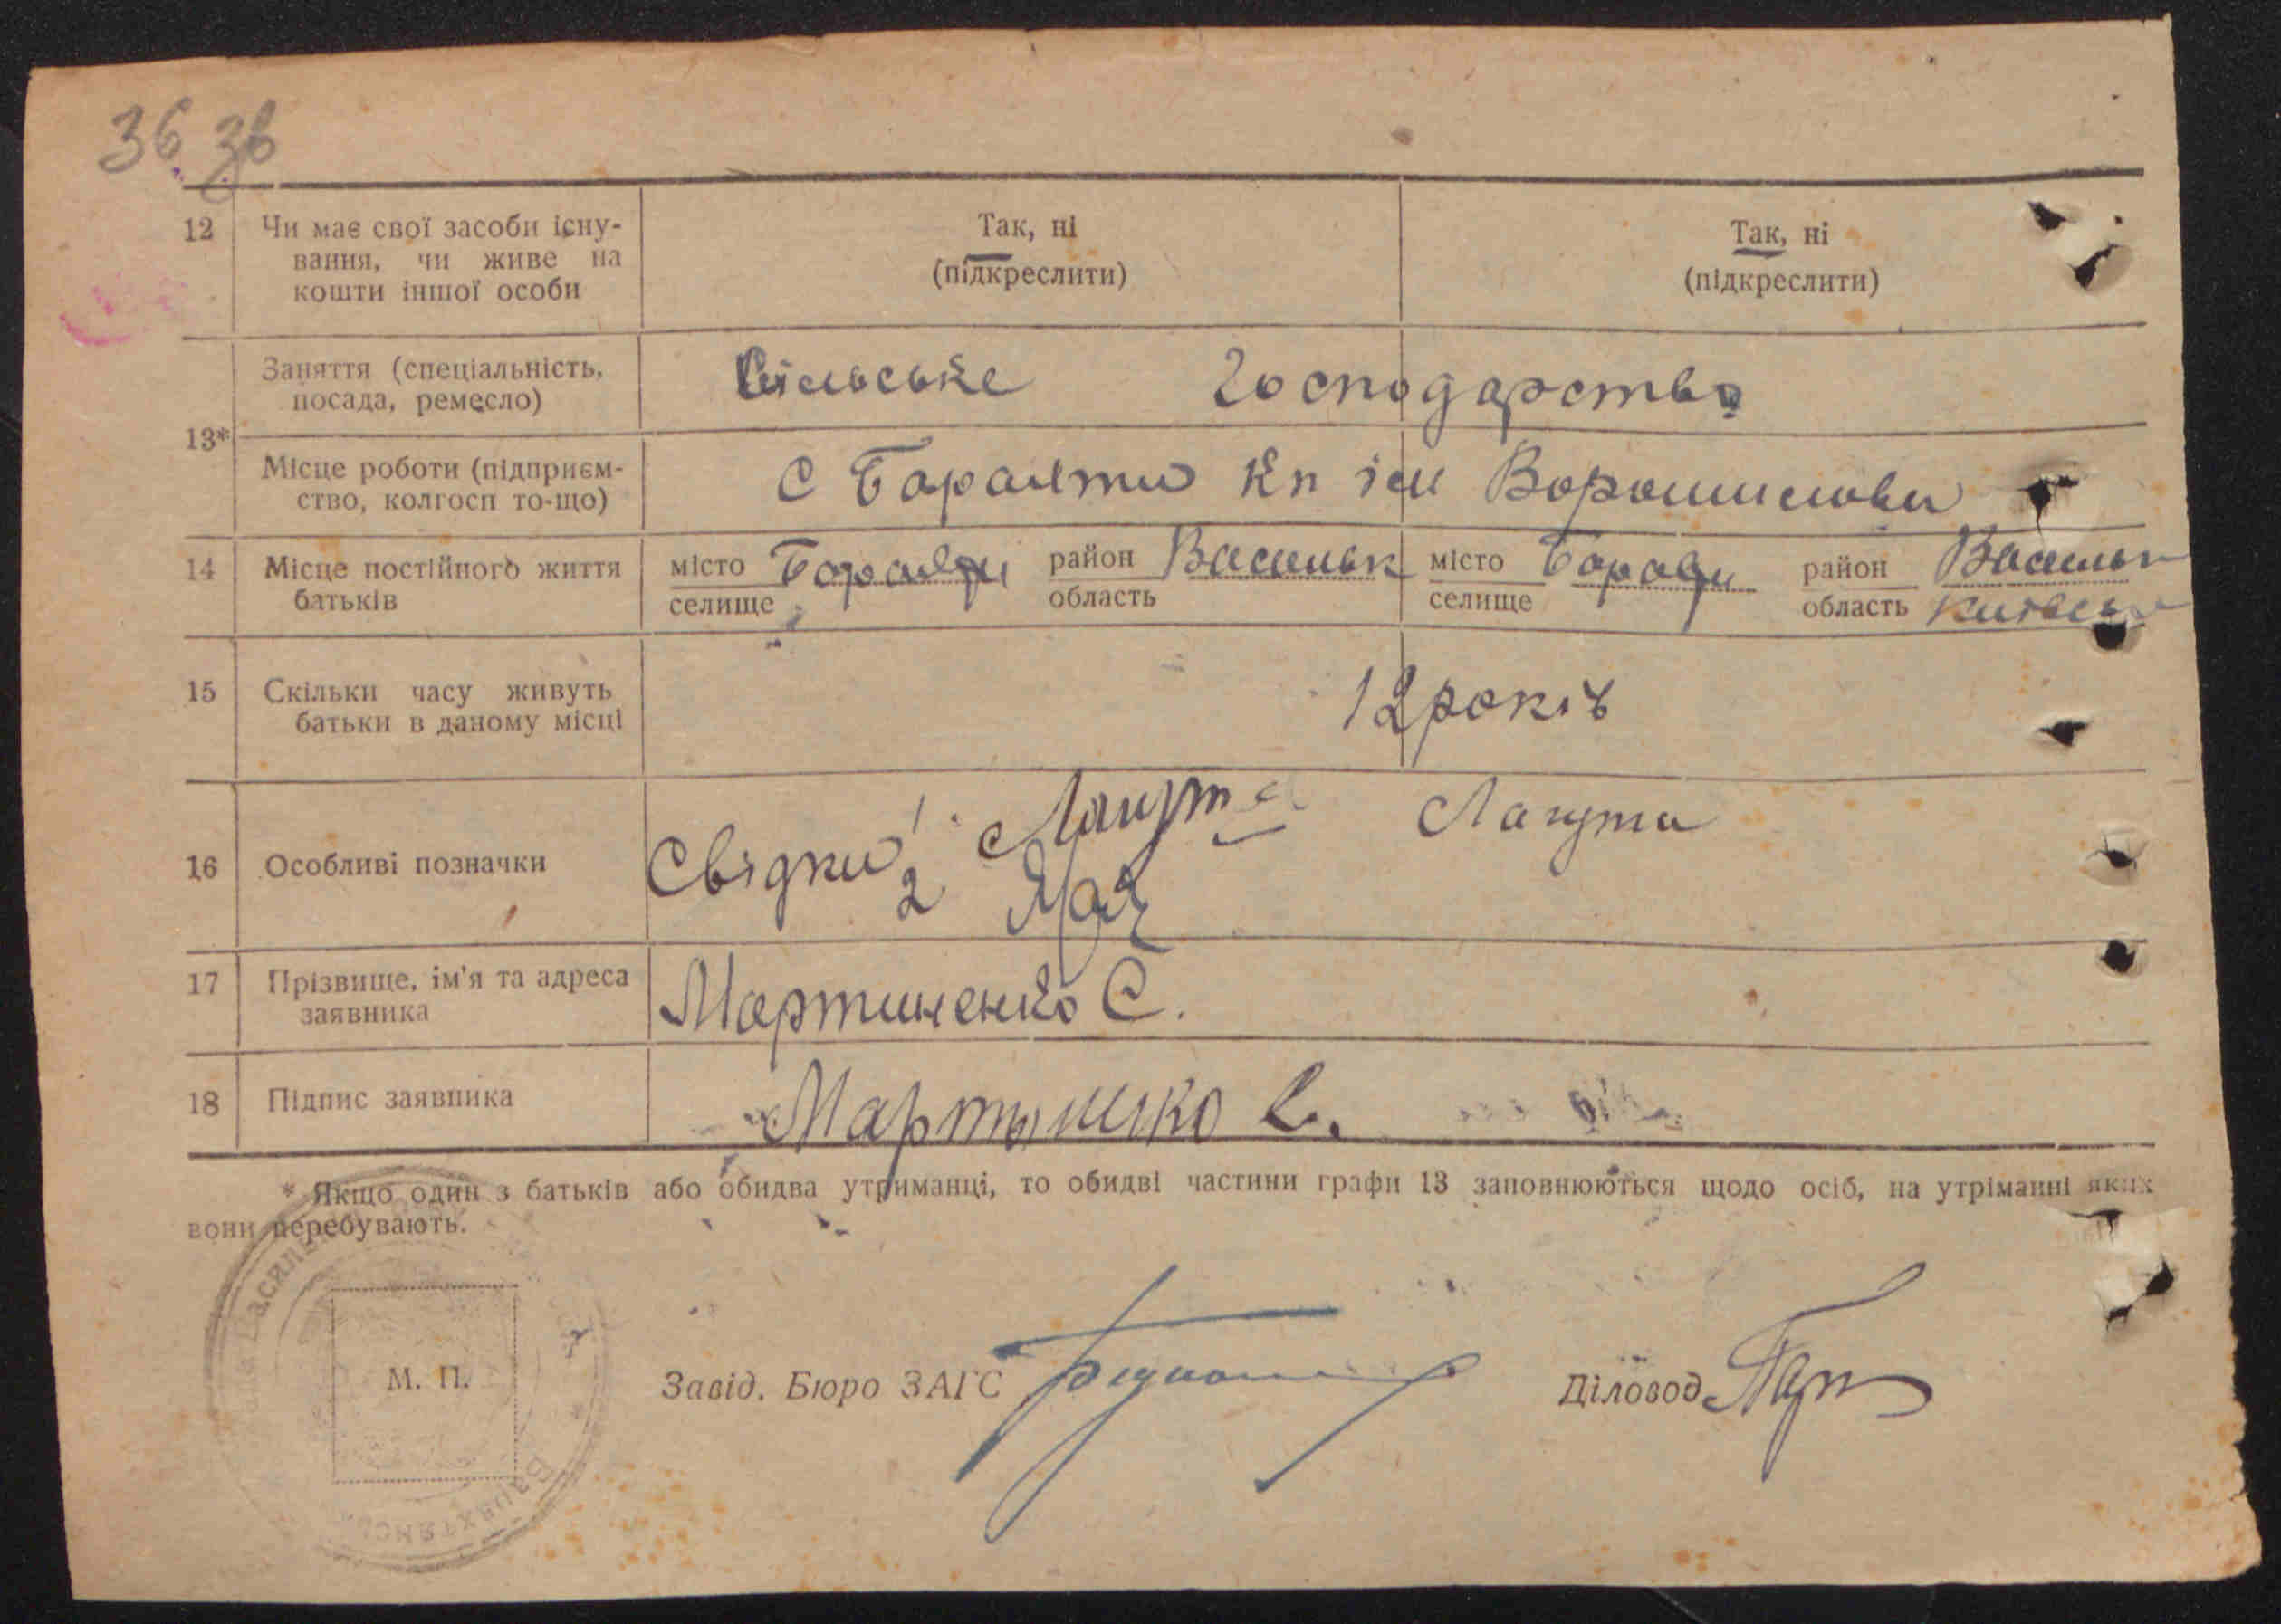 36 36
12 Чи має свої засоби існу-
вання, чи живе на
кошти іншої особи
Так, ні
(підкреслити)
Так, ні
(підкреслити)
13*
Заняття (спеціальність,
посада, ремесло)
Сільське Господарство
Місце роботи (підприєм-
ство, колгосп то-що)
С Барахти Кп ім Ворошилова
14 Місце постійного життя
батьків
місто
селище
район Васильк
область
місто
селище
район Васильк
область Київськ
15 Скільки часу живуть
батьки в даному місці
12 років
16 Особливі позначки
Свідки 1. Лагута Лагута
2
17 Прізвище, ім'я та адреса
заявника
Мартиненко С.
18 Підпис заявника
* Якщо один з батьків або обидва утриманці, то обидві частини графи 13 заповнюються щодо осіб, на утріманні яких
вони перебувають.
М. П.
Завід. Бюро ЗАГС
Діловод